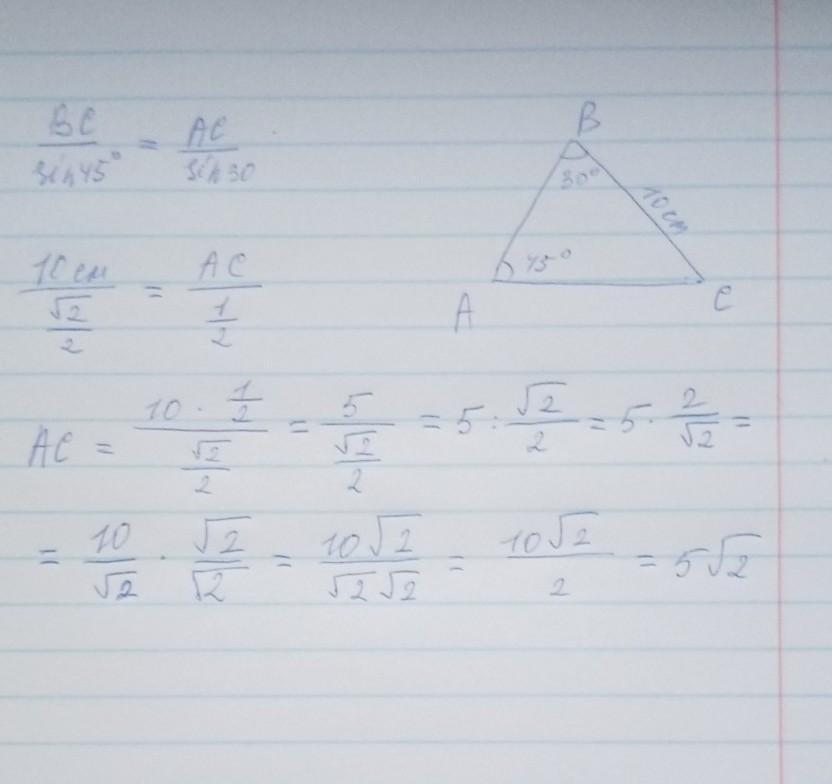 BC/sin45° = AC/sin30
B
30°
10см
45°
A
C
10см/(√2/2) = AC/(1/2)
AC = (10 · 1/2)/(√2/2) = 5/(√2/2) = 5 : √2/2 = 5 · 2/√2 =
= 10/√2 · √2/√2 = 10√2/√2√2 = 10√2/2 = 5√2